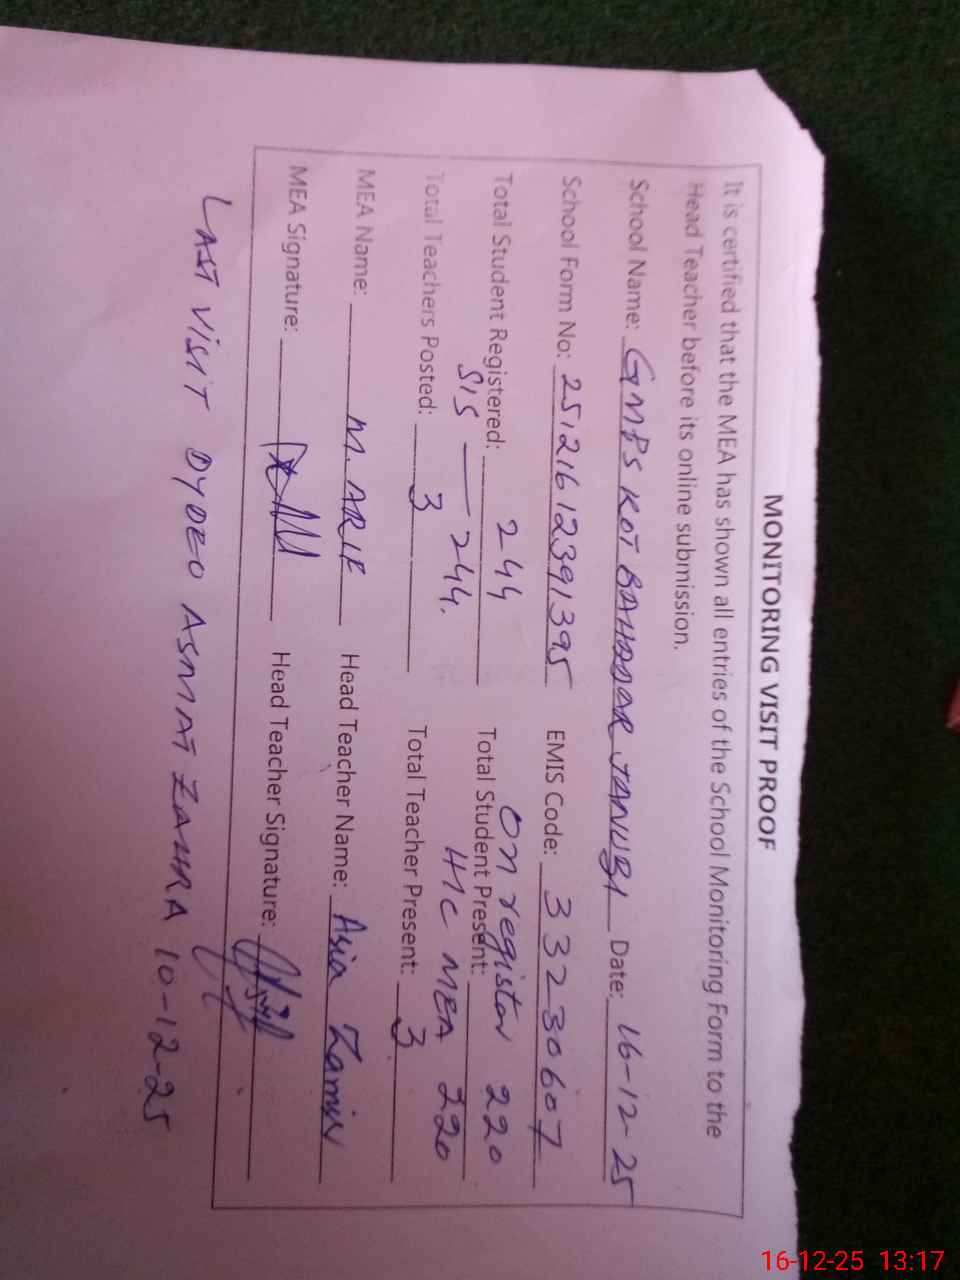 MONITORING VISIT PROOF
It is certified that the MEA has shown all entries of the School Monitoring Form to the
Head Teacher before its online submission.
School Name: GMPS KOT BAHADAR JANUBI Date: 16-12-25
School Form No: 25121612391395 EMIS Code: 33230607
On register 220
Total Student Registered: 244 Total Student Present:
SIS — 244. H/C MEA 220
Total Teachers Posted: 3 Total Teacher Present: 3
MEA Name: M. ARIF Head Teacher Name: Asia
MEA Signature: Head Teacher Signature:
LAST VISIT DYDEO ASMAT ZAHRA 10-12-25
16-12-25 13:17